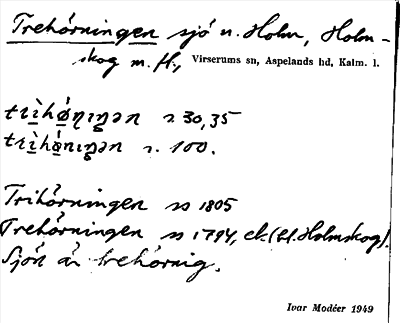 Trehörningen sjö u. Holm, Holm-
skog m. fl., Virserums sn, Aspelands hd, Kalm. l.
trìhǿṇiŋən s. 30, 35
trìhǿṇiŋən s. 100.
Trihörningen ss 1805
Trehörningen ss 1794, ek (bl. Holmskog).
Sjön är trehörnig.
Ivar Modéer 1949